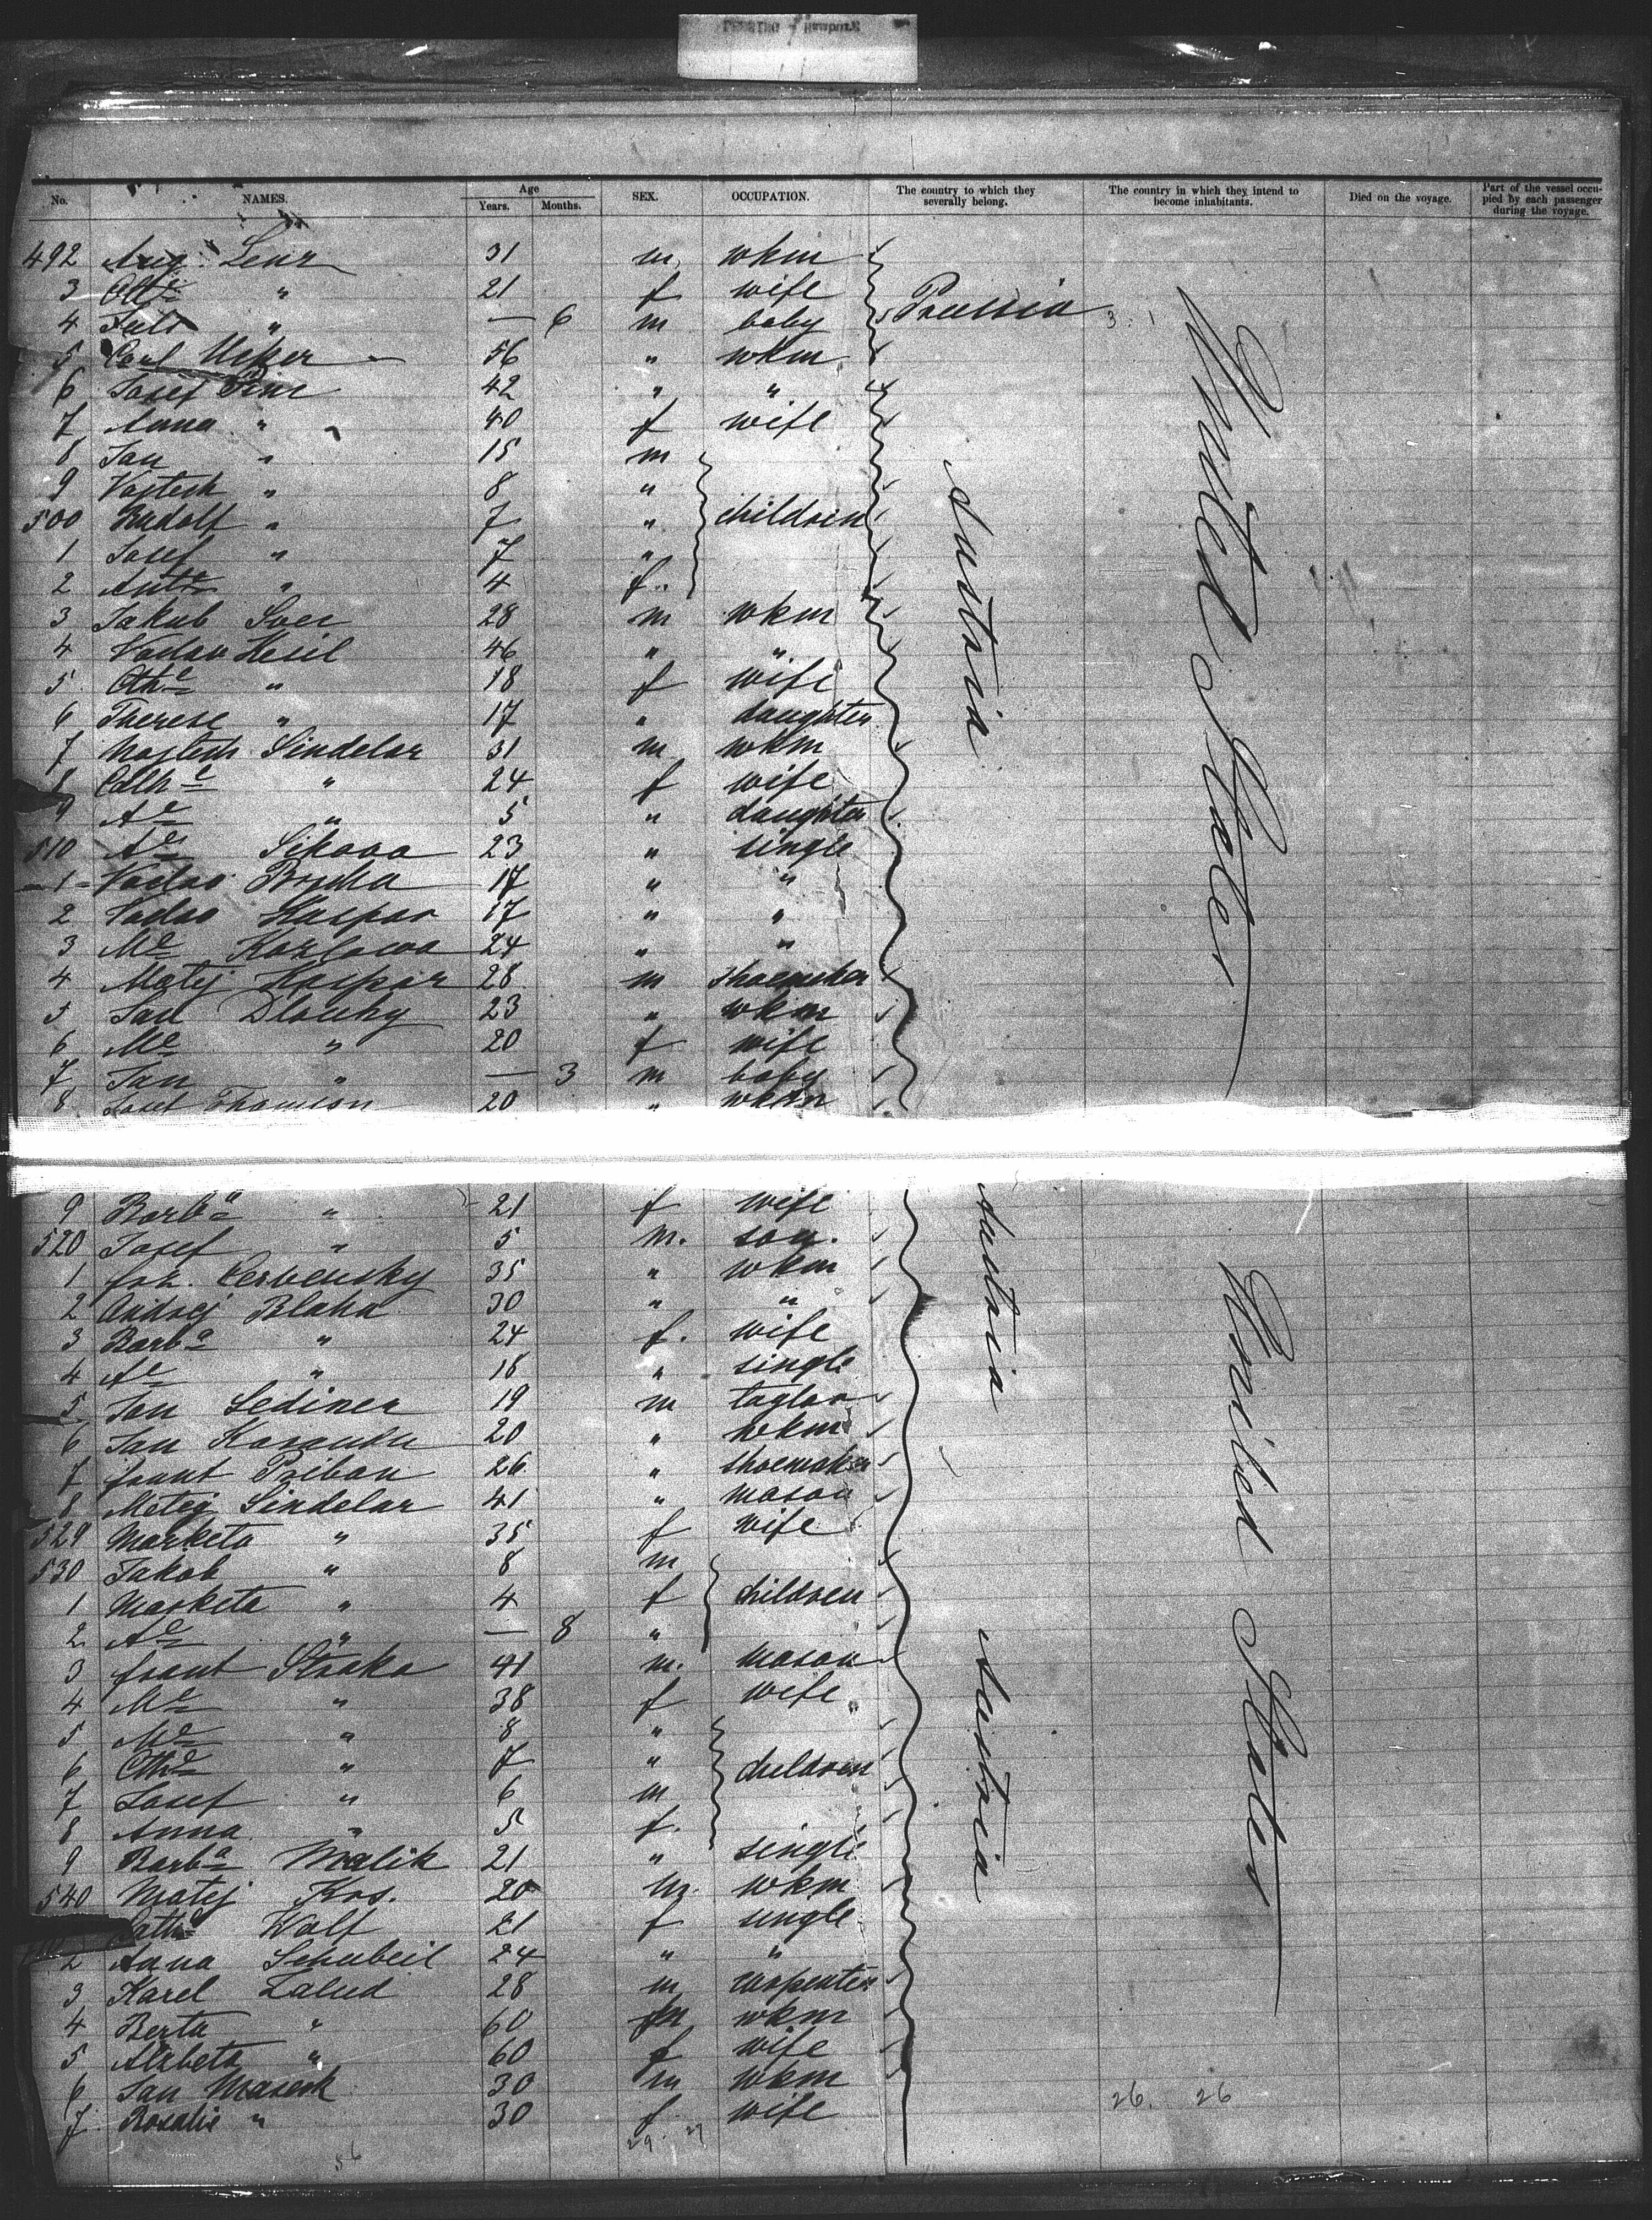 No. NAMES. Age Years. Months. SEX. OCCUPATION. The country to which they severally belong. The country in which they intend to become inhabitants. Died on the voyage. Part of the vessel occupied by each passenger during the voyage.
492 Aug. Lenz 31 m wkm
3 " 21 f wife
4 " — 6 m baby Prussia
5 Carl Ucker 56 " wkm
6 Josef 42 " "
7 Anna " 40 f wife
8 Jan " 15 m
9 Vojtech " 8 "
500 Rudolf " 7 " children
1 Josef " 7 "
2 " 4 f.
3 Jakub 28 m wkm
4 Vaclav Kesil 46 " "
5 Cthe " 18 f wife
6 Therese " 17 " daughter
7 Wojtech Sindelar 31 m wkm
8 Cathe " 24 f wife
9 Ae " 5 " daughter
510 Ae Sikova 23 " single
1 Vaclav 17 " "
2 Vaclav Kaspar 17 " "
3 Me Kozlowa 24 " "
4 Matej Kaspar 28 m shoemaker
5 Jan Dlouhy 23 " wkm
6 Me " 20 f wife
7 Jan " — 3 m baby
8 Josef 20 " wkm
Austria
United States
9 Barba " 21 f wife
520 Josef " 5 m. son.
1 Cerbensky 35 " wkm
2 Andrej Blaha 30 " "
3 Barba " 24 f. wife
4 Ae " 18 " single
5 Jan Sediner 19 m taylor
6 Jan 20 " wkm
7 frant Priban 26 " shoemaker
8 Metej Sindelar 41 " mason
529 Marketa " 35 f wife
530 Jakob " 8 m
1 Marketa " 4 f children
2 Ae " — 8 "
3 frant Straka 41 m. mason
4 Me " 38 f wife
5 Me " 8 "
6 Cthe " 7 " children
7 Josef " 6 m
8 Anna " 5 f.
9 Barba Malik 21 " single
540 Matej Kos. 20 m. wkm
Cathe Wolf 21 f single
2 Anna Schubeil 24 " "
3 Karel Zalud 28 m carpenter
4 Berta " 60 m wkm
5 Alzbeta " 60 f wife
6 Jan Masek 30 m wkm
7 Rosalie " 30 f wife
Austria
Austria
United States
26. 26
29. 27
56